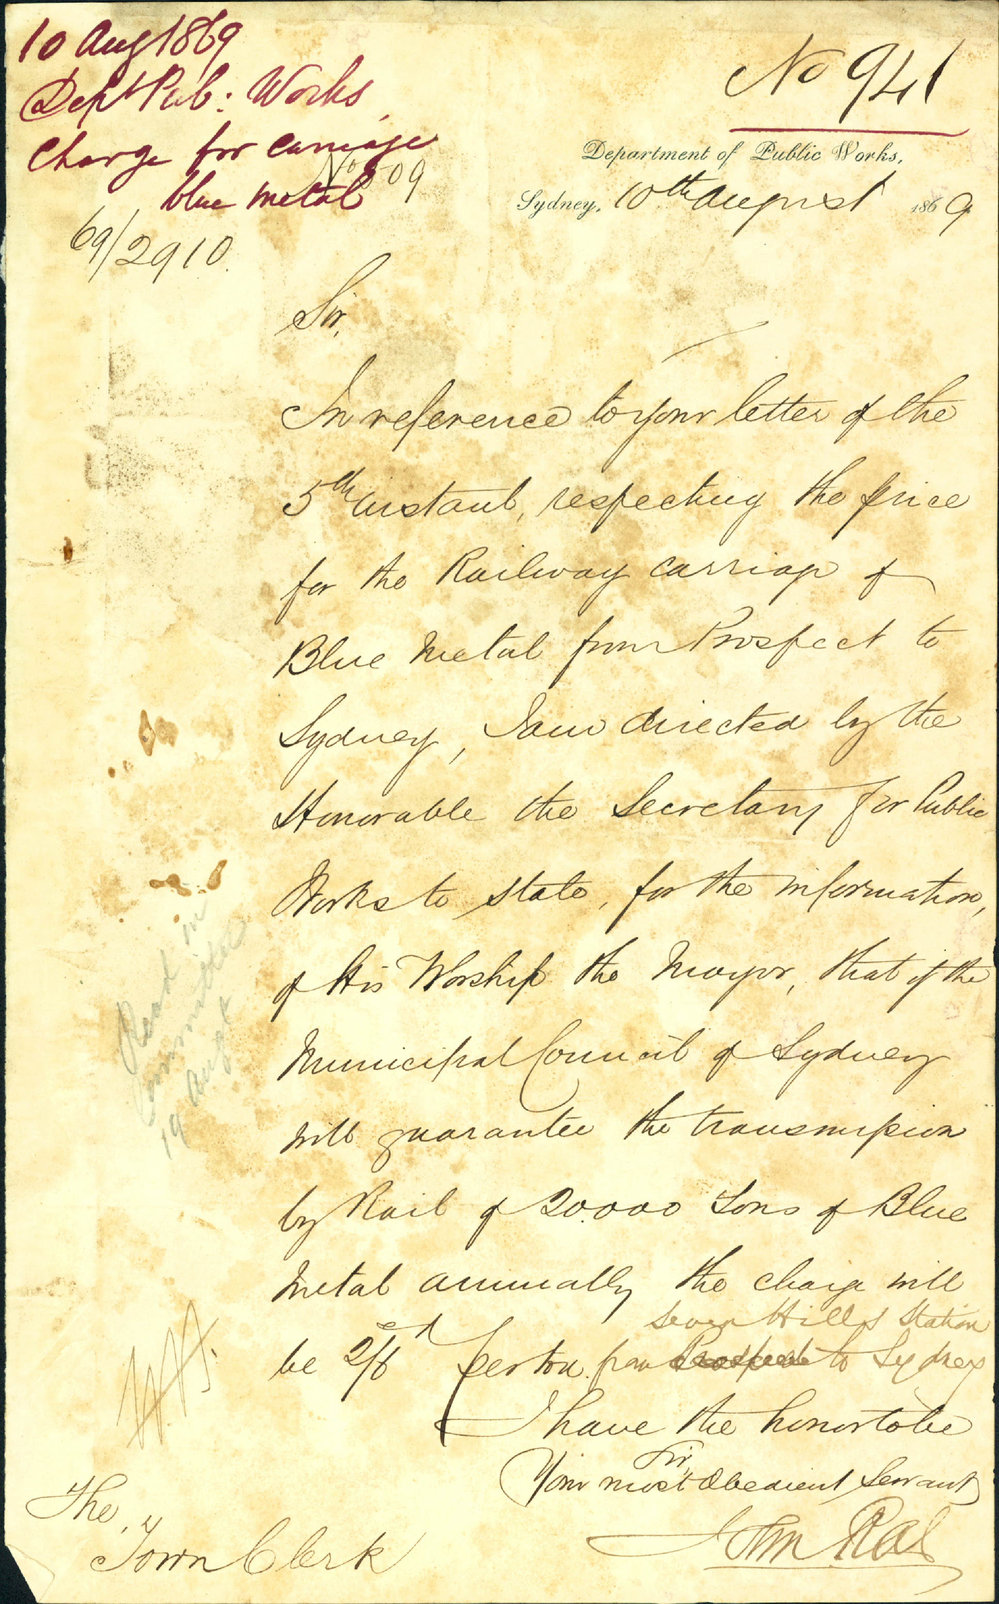 10 Aug 1869
Dept Pub: Works
Charge for Carriage
blue metal
69/2910.
No 941
Department of Public Works,
Sydney, 10th August 1869
Sir,
In reference to your letter of the
5th instant, respecting the price
for the Railway carriage of
Blue Metal from Prospect to
Sydney, I am directed by the
Honorable the Secretary for Public
Works to state, for the information,
of His Worship the Mayor, that if the
Municipal Council of Sydney
will guarantee the transmission
by Rail of 20.000 Tons of Blue
Metal annually the charge will
Seven Hills Station
be 2/6 per ton from Prospect to Sydney
I have the honor to be
Sir,
Your most Obedient Servant
John Rae
The
Town Clerk
Read in
Committee
19 Augt